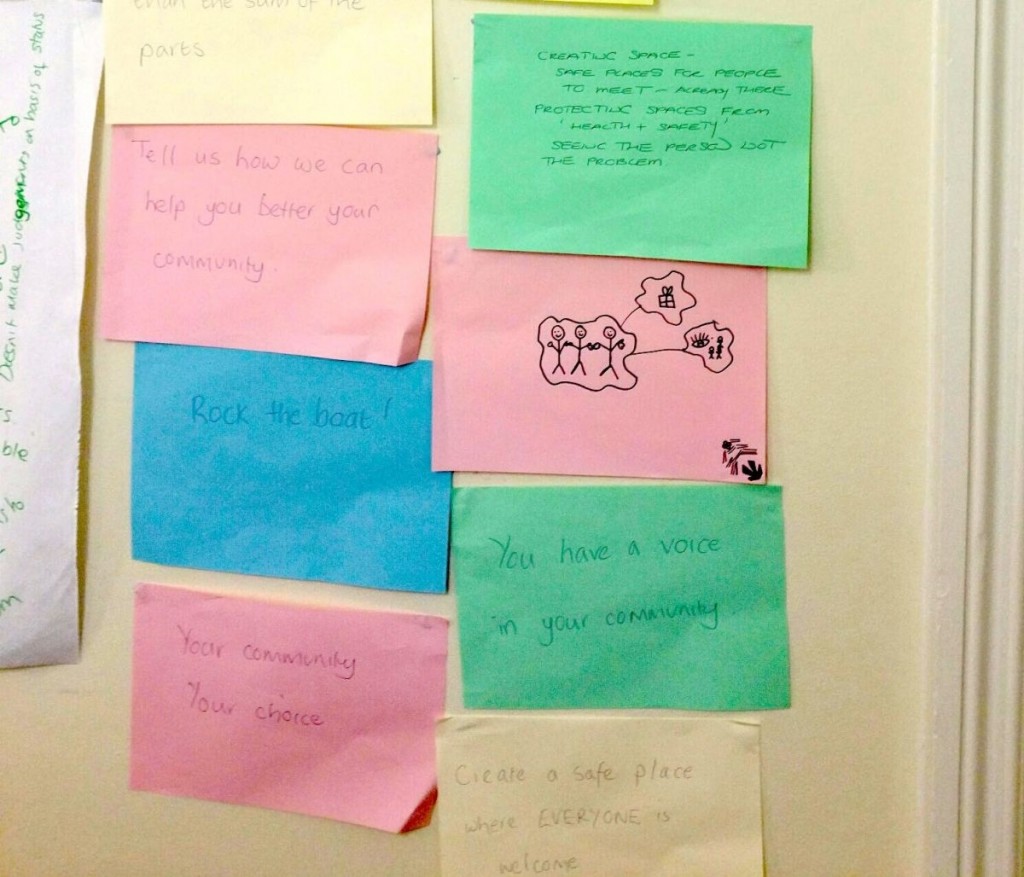 than the sum of the
parts
Tell us how we can
help you better your
community.
Rock the boat!
Your community
Your choice
CREATING SPACE -
SAFE PLACES FOR PEOPLE
TO MEET - ALREADY THERE
PROTECTING SPACES FROM
'HEALTH + SAFETY'
SEEING THE PERSON NOT
THE PROBLEM
You have a voice
in your community
Create a safe place
where EVERYONE is
welcome
Doesn't make judgements on basis of status
ble